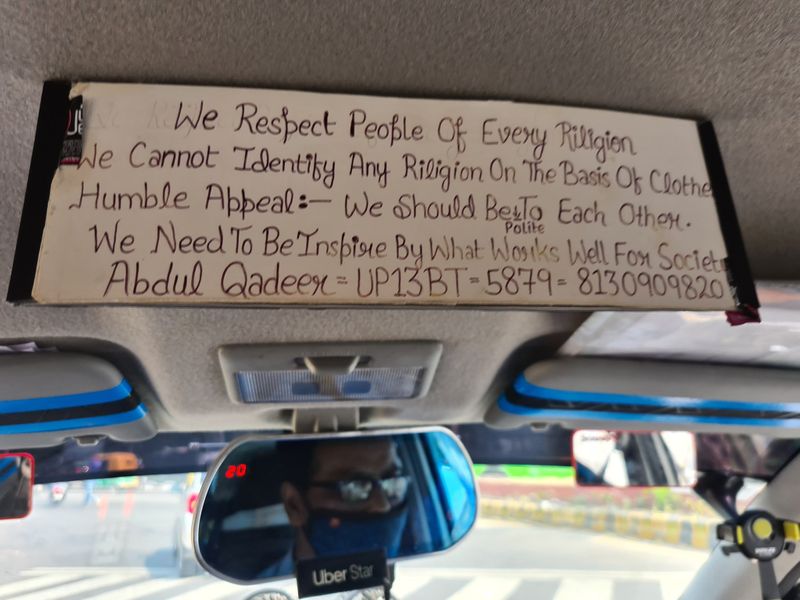 We Respect People Of Every Riligion
We Cannot Identify Any Riligion On The Basis Of Clothe
Humble Appeal:— We Should Be To Each Other.
Polite
We Need To Be Inspire By What Works Well For Society
Abdul Qadeer = UP13BT = 5879 = 8130909820
20
Uber Star